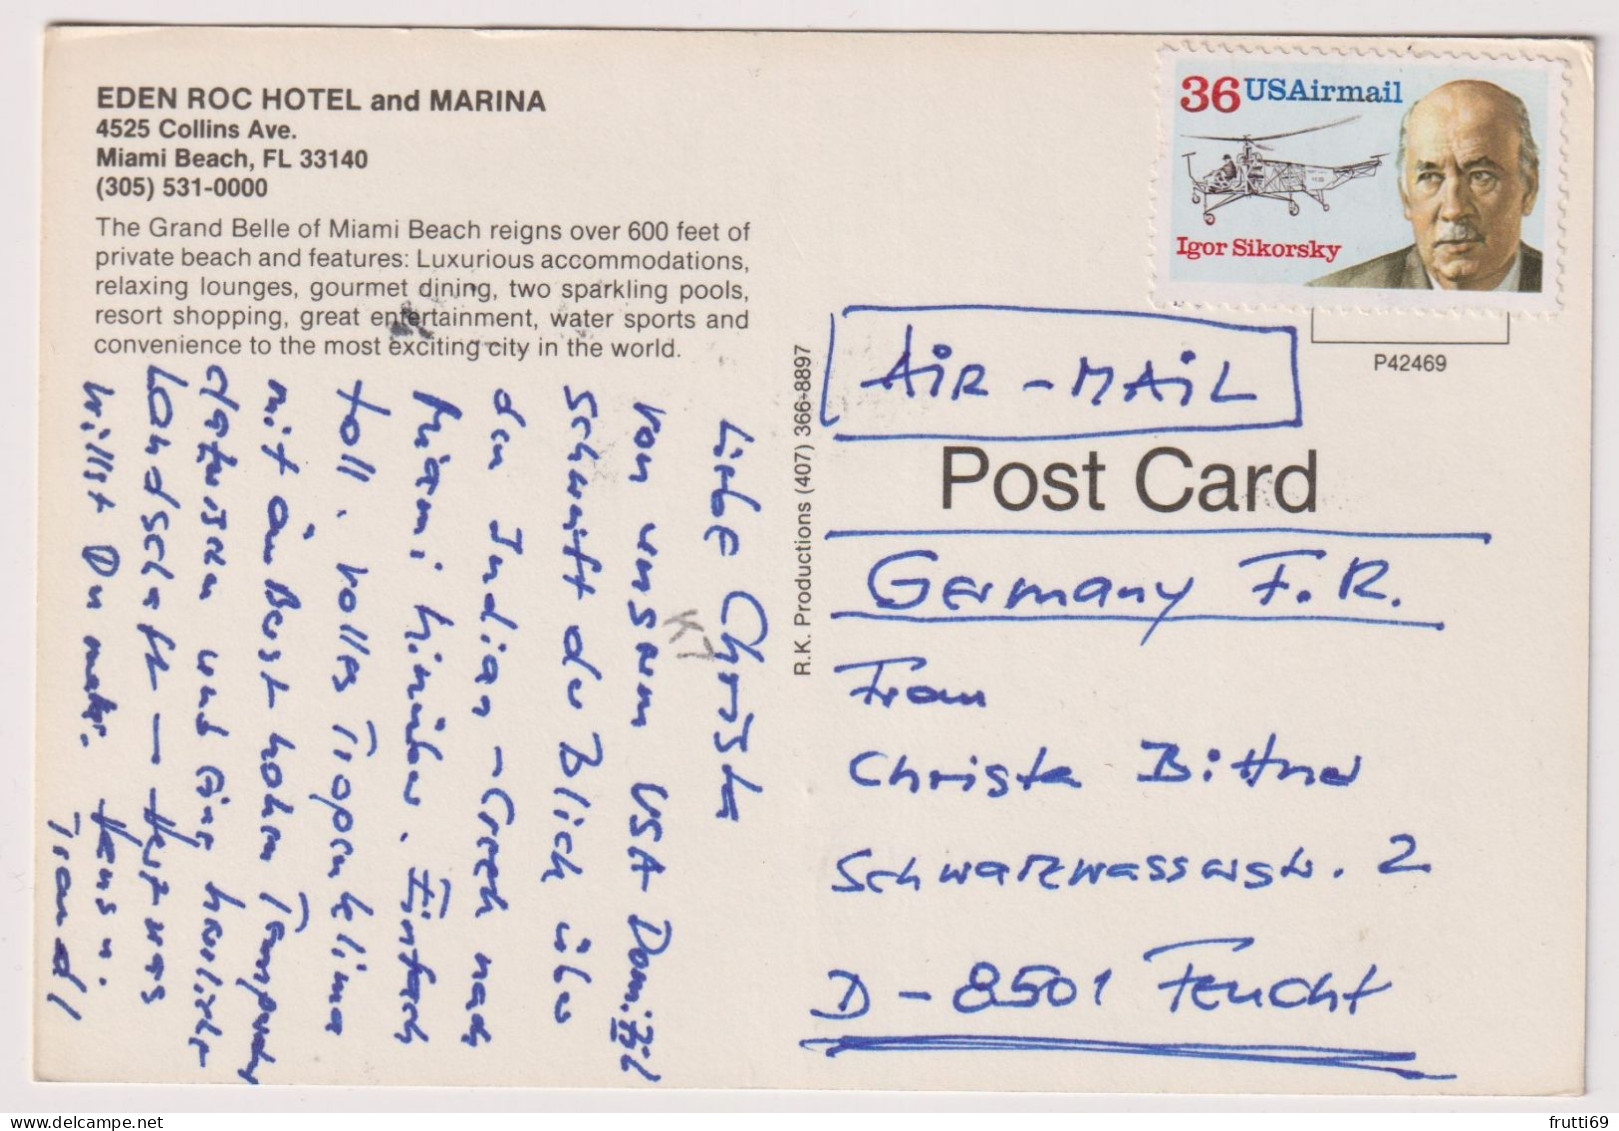 EDEN ROC HOTEL and MARINA
4525 Collins Ave.
Miami Beach, FL 33140
(305) 531-0000
The Grand Belle of Miami Beach reigns over 600 feet of
private beach and features: Luxurious accommodations,
relaxing lounges, gourmet dining, two sparkling pools,
resort shopping, great entertainment, water sports and
convenience to the most exciting city in the world.
Liebe Christa
von unserm USA Domizil
schweift der Blich über
den Indian-Creek nach
Miami hinüber. Einfach
toll. volles Tropenklima
mit äußerst hohen
dazwischen und eine
Landschaft —
willst Du mehr.
Traudl
R.K. Productions (407) 366-8897
36 USAirmail
Igor Sikorsky
P42469
AIR-MAIL
Post Card
Germany F.R.
Frau
Christa Bittner
Schwarzwasserstr. 2
D-8501 Feucht
KT
frutti69